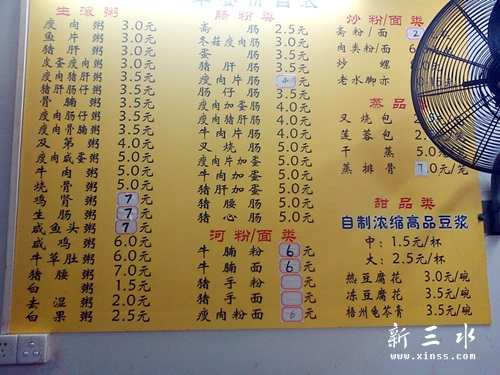 生滚粥
瘦肉粥 3.0元
鱼片粥 3.0元
猪肝粥 3.0元
皮蛋瘦肉粥 3.5元
瘦肉猪肝粥 3.5元
猪肝肠仔粥 3.5元
骨腩粥 3.5元
瘦肉肠仔粥 3.5元
瘦肉骨腩粥 3.5元
及第粥 4.0元
瘦肉咸蛋粥 5.0元
牛肉粥 5.0元
烧骨粥 5.0元
鸡肾粥 7元
生肠粥 7元
咸鱼头粥 7元
咸鸡粥 6.0元
牛草肚粥 6.0元
猪腰粥 7.0元
白粥 1.5元
去湿粥 2.0元
白果粥 2.5元
肠粉类
斋肠 2.5元
冬菇瘦肉肠 3.0元
蛋肠 3.5元
猪肝肠 3.5元
瘦肉片肠 4元
肠仔肠 3.5元
瘦肉加蛋肠 4.0元
猪肝片肠 4.0元
牛肉片肠 4.0元
叉烧肠 5.0元
瘦肉片加蛋 5.0元
牛肉加蛋肠 5.0元
猪肝加蛋肠 5.0元
猪腰肠 5.0元
猪心肠 5.0元
河粉/面类
牛腩粉 6元
牛腩面 6元
猪手粉 元
猪手面 元
瘦肉粉面 6元
炒粉/面类
斋粉/面 2
肉类粉/面 6
炒螺
老水脚亦
蒸品类
叉烧包
莲蓉包 2.0
干蒸 5.0元
蒸排骨 7.0元/笼
甜品类
自制浓缩高品豆浆
中：1.5元/杯
大：2.5元/杯
热豆腐花 3.0元/碗
冻豆腐花 3.5元/碗
梧州龟苓膏 3.5元/碗
新三水
www.xinss.com